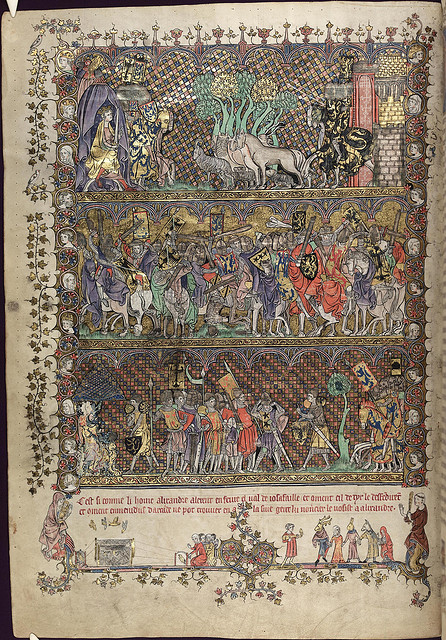 Cest si comme li home alixandre alerent en fuere el ual de iosaffaille et coment cil de tyr le deffendirēt
et coment emenidus darcade ne pot trouuer en la sue gent ki noncier le uosist a alixandre.